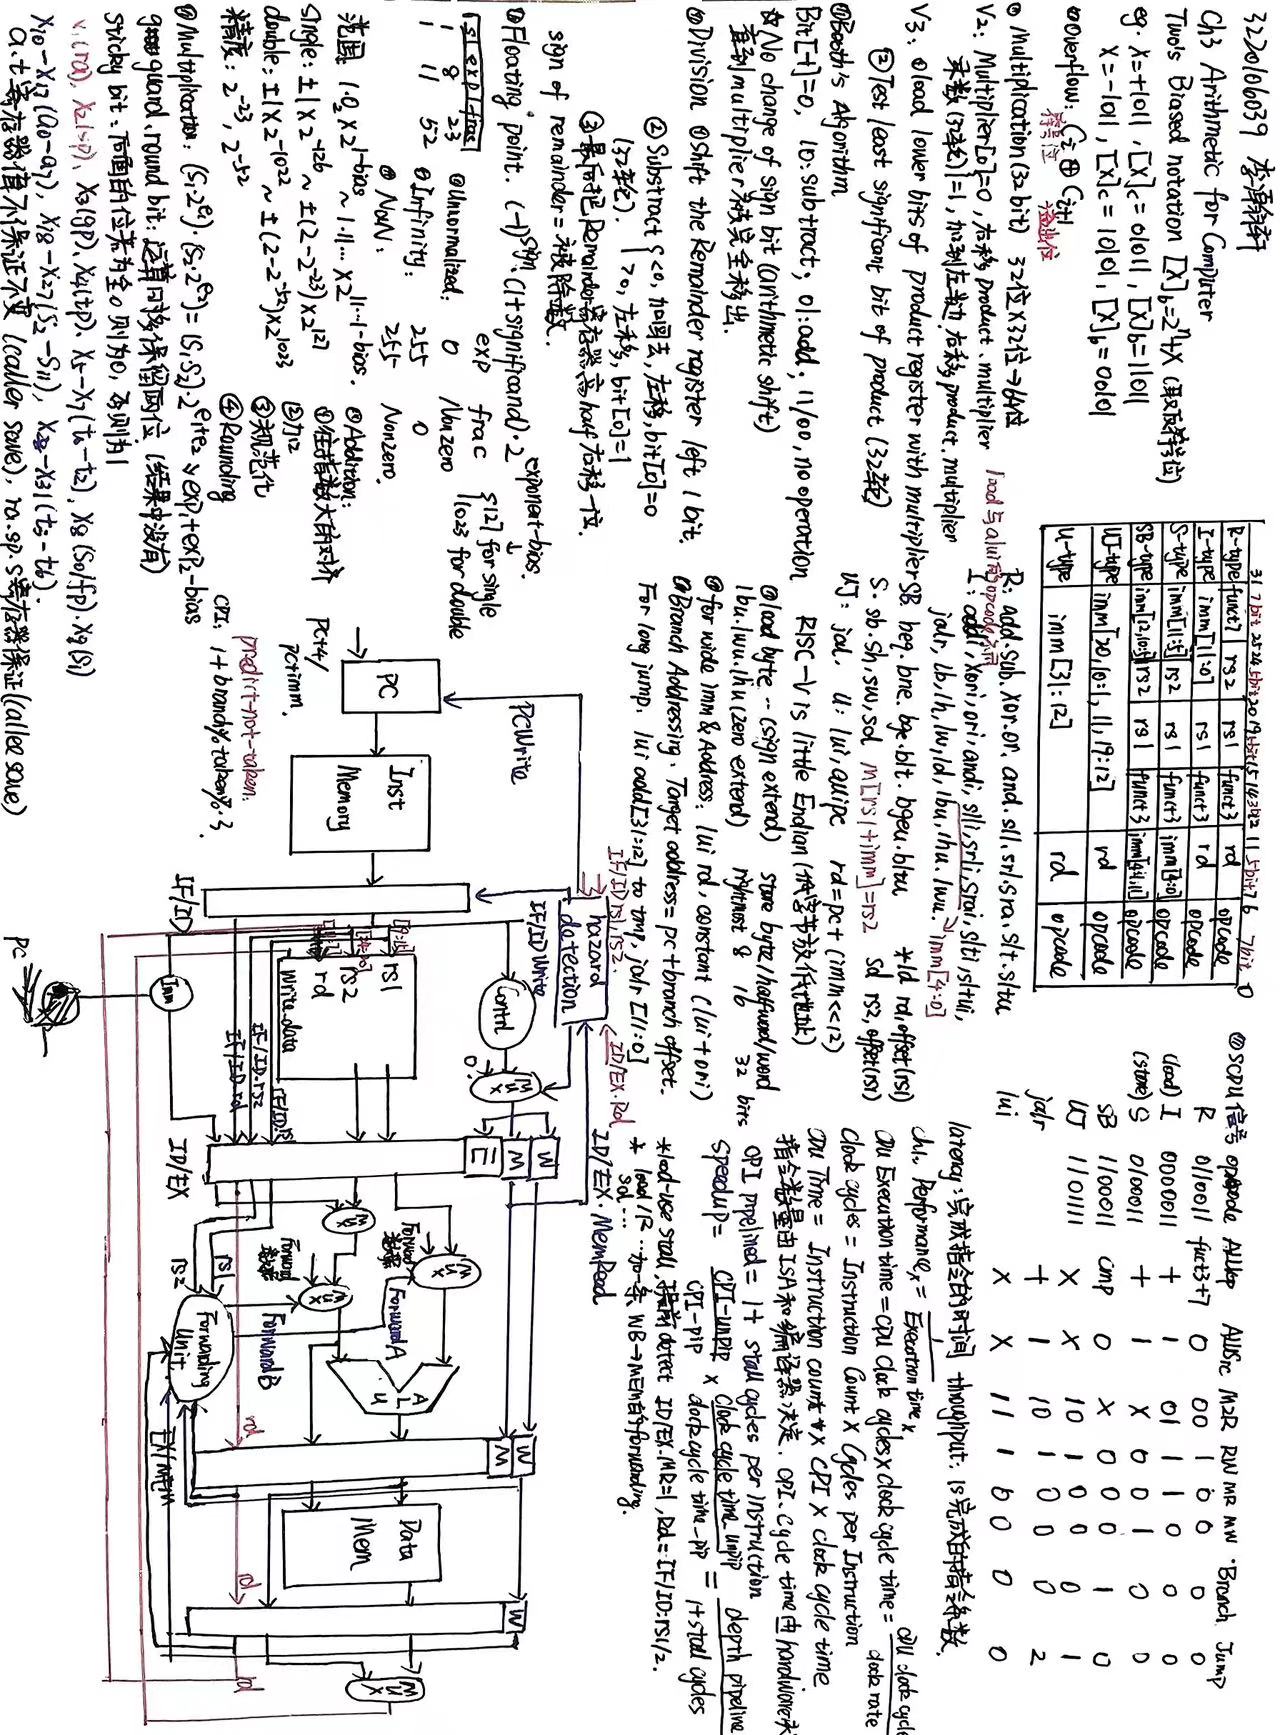 Ch3 Arithmetic for Computer
Two's Biased notation [X]b=2ⁿ+X (取反符号位)
eg. X=+1011, [X]c=01011, [X]b=11011
X=-1011, [X]c=10101, [X]b=00101
Overflow: Ci⊕Ci+1
符号位
溢出位
Multiplication (32bit) 32位×32位→64位
V2: Multiplier[0]=0, 右移product.multiplier
乘数(32轮)=1, 加到左数, 右移product.multiplier
V3: ①load lower bits of product register with multiplier
②Test least significant bit of product (32轮)
Booth's Algorithm
Bit[-1]=0, 10:subtract, 01:add, 11/00, no operation
No change of sign bit (arithmetic shift)
直到multiplier被完全移出.
Division ①shift the Remainder register left 1 bit.
②Substract {<0, 加回去, 左移, bit[0]=0
(32轮). >0, 左移, bit[0]=1
③最后把Remainder寄存器高half右移一位.
sign of remainder = 被除数.
Floating point. (-1)^sign·(1+significand)·2^exponent-bias.
{127 for single
1023 for double
|s|exp|frac|
1 8 23
1 11 52
exp frac
Unnormalized: 0 Nonzero
Infinity: 255 0
NaN: 255 Nonzero.
范围 1.0×2^1-bias ~ 1.11...×2^11...1-bias.
single: ±1×2^-126 ~ ±(2-2^-23)×2^127
double: ±1×2^-1022 ~ ±(2-2^-52)×2^1023
精度: 2^-23, 2^-52
Addition:
①往指数大的对齐
②加
③规范化
④Rounding
Multiplication: (S1·2^e1)·(S2·2^e2)=(S1·S2)·2^e1+e2 → exp1+exp2-bias
guard, round bit: 运算时多保留两位 (结果中没有)
sticky bit: 后面的位若为全0则为0, 否则为1
x1(ra), x2(sp), x3(gp), x4(tp), x5-x7(t0-t2), x8(s0/fp), x9(s1)
x10-x17(a0-a7), x18-x27(s2-s11), x28-x31(t3-t6).
a.t寄存器值不保证不变 (caller save), ra.sp.s寄存器保证(callee save)
31 7bit 25 24 5bit 20 19 5bit 15 14 3bit 12 11 5bit 7 6 7bit 0
R-type funct7 rs2 rs1 funct3 rd opcode
I-type imm[11:0] rs1 funct3 rd opcode
S-type imm[11:5] rs2 rs1 funct3 imm[4:0] opcode
SB-type imm[12,10:5] rs2 rs1 funct3 imm[4:1,11] opcode
UJ-type imm[20,10:1,11,19:12] rd opcode
U-type imm[31:12] rd opcode
R: add.sub.xor.or.and.sll.srl.sra.slt.sltu
I: addi, xori, ori, andi, slli, srli, srai, slti, sltui,
→imm[4:0]
jalr, lb, lh, lw, ld, lbu, lhu, lwu.
SB beq. bne. bge. blt. bgeu. bltu
*ld rd, offset(rs1)
S. sb. sh, sw, sd M[rs1+imm]=rs2 sd rs2, offset(rs1)
UJ: jal. U: lui, auipc rd=pc+(imm<<12)
RISC-V is little Endian (低字节放低地址)
load byte -- (sign extend) store byte/halfword/word
lbu.lwu.lhu (zero extend) rightmost 8 16 32 bits
for wide imm & Address: lui rd, constant (lui+ori)
Branch Addressing. Target address=pc+branch offset.
For long jump. lui add[31:12] to tmp, jalr [11:0]
SCPU信号 opcode ALUop ALUSrc M2R RW MR MW Branch Jump
R 0110011 fuct3+7 0 00 1 0 0 0 0
(load) I 0000011 + 1 01 1 1 0 0 0
(store) S 0100011 + 1 X 0 0 1 0 0
SB 1100011 cmp 0 X 0 0 0 1 0
UJ 1101111 X X 10 1 0 0 0 1
jalr + 1 10 1 0 0 0 2
lui X X 11 1 0 0 0 0
latency: 完成指令的时间 throughput: 1s完成的指令条数.
ch1. Performance x = 1/Execution time x
CPU Execution time = CPU Clock cycles × clock cycle time = CPU clock cycle/clock rate
Clock cycles = Instruction Count × Cycles per Instruction
CPU Time = Instruction count × CPI × clock cycle time
指令数量由ISA和编译器决定. CPI. cycle time由hardware决
CPI pipelined = 1+ stall cycles per instruction
Speedup = CPI-unpip/CPI-pip × clock cycle time-unpip/clock cycle time-pip = depth pipeline/1+stall cycles
*load-use stall, 提前detect ID/EX.MR=1, Rd=IF/ID.rs1/2.
* load 后 sd... 加一条 WB→MEM的forwarding.
predict-not-taken:
CPI: 1+branch%·taken%·3
PC+4/
pc+imm.
PC
PCWrite
Inst
Memory
IF/ID
IF/ID.rs1,rs2.
hazard
detection
IF/IDWrite
ID/EX.Rd
ID/EX.MemRead
Control
0
Mux
rs1
rs2
rd
Write data
Imm
PC
IF/ID.rs1
IF/ID.rs2
IF/ID.rd
W
M
E
ID/EX
Mux
Mux
Mux
Forward
数据
Forward
数据
ForwardA
ForwardB
rs1
rs2
Forwarding
Unit
ALU
EX/MEM
rd
W
M
Data
Mem
rd
W
Mux
rd